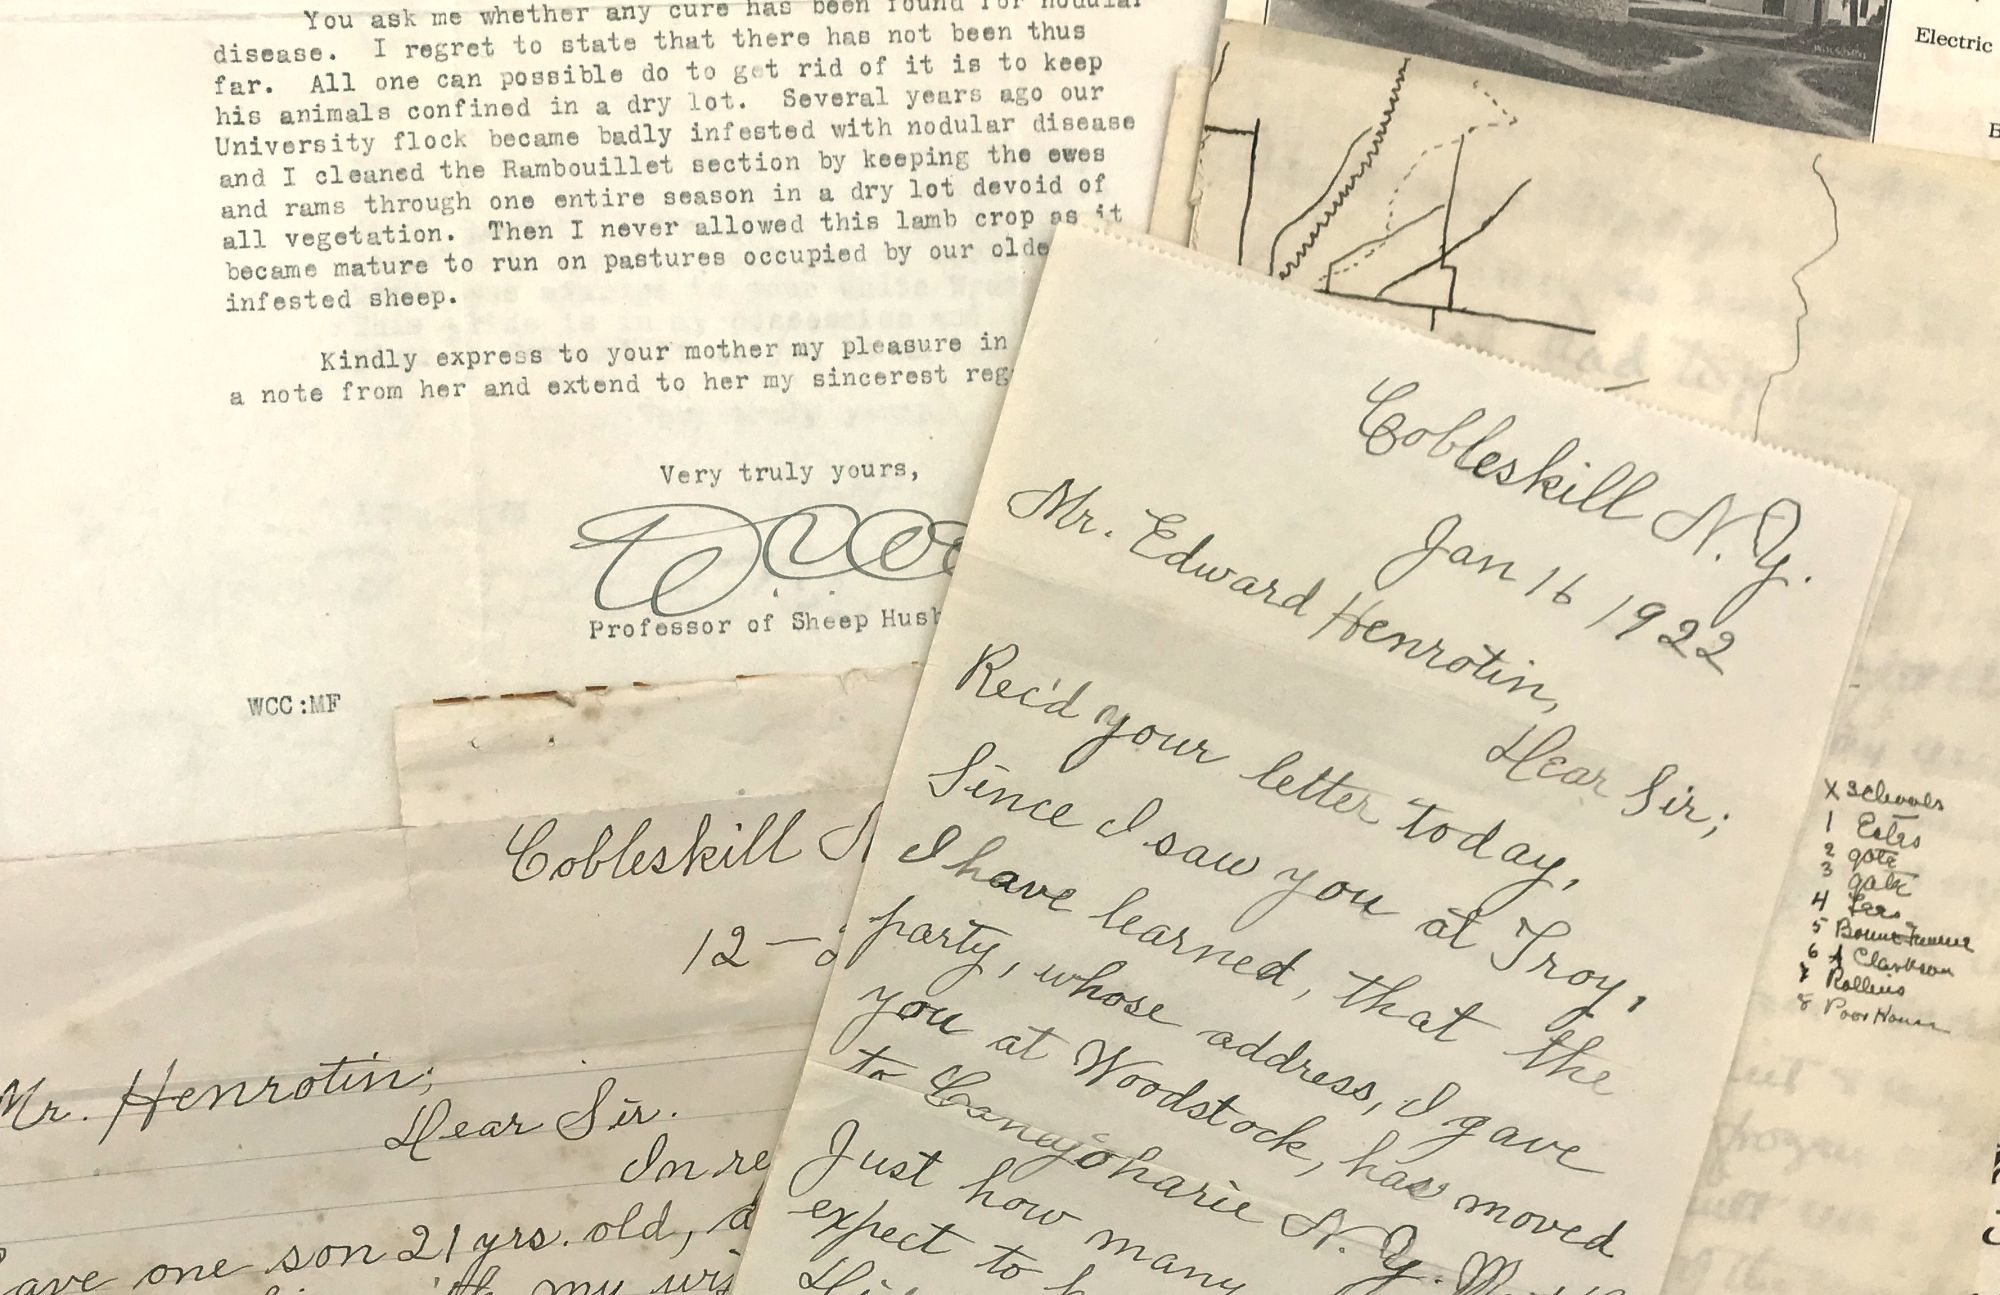 You ask me whether any cure has been found for nodular
disease. I regret to state that there has not been thus
far. All one can possible do to get rid of it is to keep
his animals confined in a dry lot. Several years ago our
University flock became badly infested with nodular disease
and I cleaned the Rambouillet section by keeping the ewes
and rams through one entire season in a dry lot devoid of
all vegetation. Then I never allowed this lamb crop as it
became mature to run on pastures occupied by our olde
infested sheep.
Kindly express to your mother my pleasure in
a note from her and extend to her my sincerest reg
Very truly yours,
Professor of Sheep Husb
WCC:MF
Cobleskill N
12 —
Mr. Henrotin;
Dear Sir.
In re
ave one son 21 yrs. old,
my wi
Cobleskill N.Y.
Jan 16 1922
Mr. Edward Henrotin,
Dear Sir;
Rec'd your letter today,
Since I saw you at Troy,
I have learned, that the
party, whose address, I gave
you at Woodstock, has moved
to Canajoharie N.Y.
Just how many
expect to
Electric
B
X Schools
1
2 gate
3 gate
4
5
6 Clarkson
7 Rollins
8 Poor House